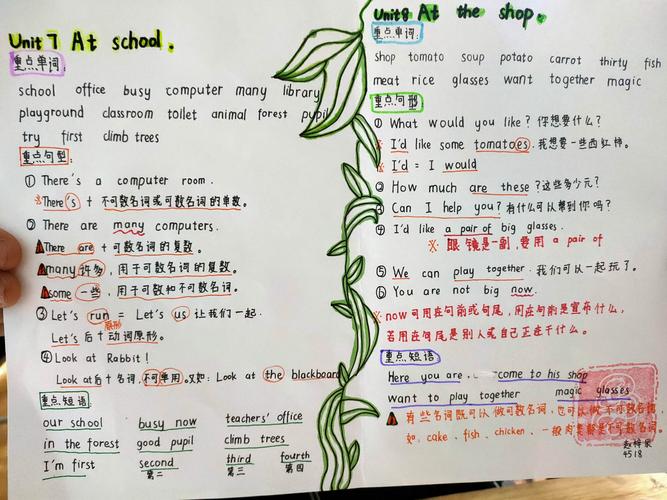 Unit 7 At school.
重点单词:
school office busy computer many library
playground classroom toilet animal forest pupil
try first climb trees
重点句型:
① There's a computer room.
※There's + 不可数名词或可数名词的单数。
② There are many computers.
There are + 可数名词的复数。
many 许多, 用于可数名词的复数。
some 一些, 用于可数和不可数名词。
③ Let's run = Let us 让我们一起.
原形
Let's 后+动词原形。
④ Look at Rabbit!
Look at后+名词, 不可单用。又如: Look at the blackboard
重点短语:
our school busy now teachers' office
in the forest good pupil climb trees
I'm first second third fourth
第二 第三 第四
Unit 8 At the shop.
重点单词:
shop tomato soup potato carrot thirty fish
meat rice glasses want together magic
重点句型
① What would you like? 你想要什么?
※ I'd like some tomatoes. 我想要一些西红柿。
※ I'd = I would
② How much are these? 这些多少元?
③ Can I help you? 有什么可以帮到你吗?
④ I'd like a pair of big glasses.
※ 眼镜是一副, 要用 a pair of
⑤ We can play together. 我们可以一起玩了。
⑥ You are not big now.
※now可用在句前或句尾, 用在句前是宣布什么,
若用在句尾是别人或自己正在干什么。
重点短语
Here you are. come to his shop
want to play together magic glasses
有些名词既可以做可数名词, 也可以做不可数名词
如, cake、fish、chicken、一般肉类都是不可数名词。
4518